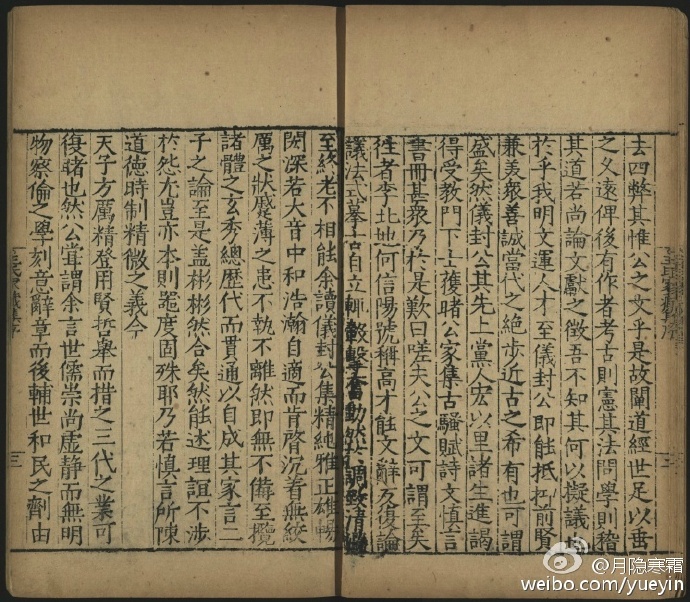 去四弊其惟公之文乎是故闡道經世足以垂
之久遠俾後有作者考古則憲其法問學則稽
其道若尚論文獻之徵吾不知其何以擬議也
於乎我明文運人才至儀封公即能抵抑前賢
兼美衆善誠當代之絕步近古之希有也可謂
盛矣然儀封公其先上黨人宏以里諸生進謁
得受教門下士獲睹公家集古騷賦詩文慎言
書冊甚衆乃於是歎曰嗟夫公之文可謂至矣
往者李北地何信陽號稱高才能文辭反復論
議法式摹古自立
至終老不相能余讀儀封公集精純雅正雄暢
閎深若大音中和浩瀚自適而肯綮沉着無紋
厲之狀蹙薄之患不執不離然即無不備至攬
諸體之玄秀總歷代而貫通以自成其家言二
子之論至是盖彬彬然合矣然能述理誼不涉
於怨尤豈亦本則器度固殊耶乃若慎言所陳
道德時制精微之義今
天子方厲精登用賢哲舉而措之三代之業可
復睹也然公嘗謂余言世儒崇尚虛静而無明
物察倫之學刻意辭章而後輔世和民之劑由
三
@月隐寒霜
weibo.com/yueyin